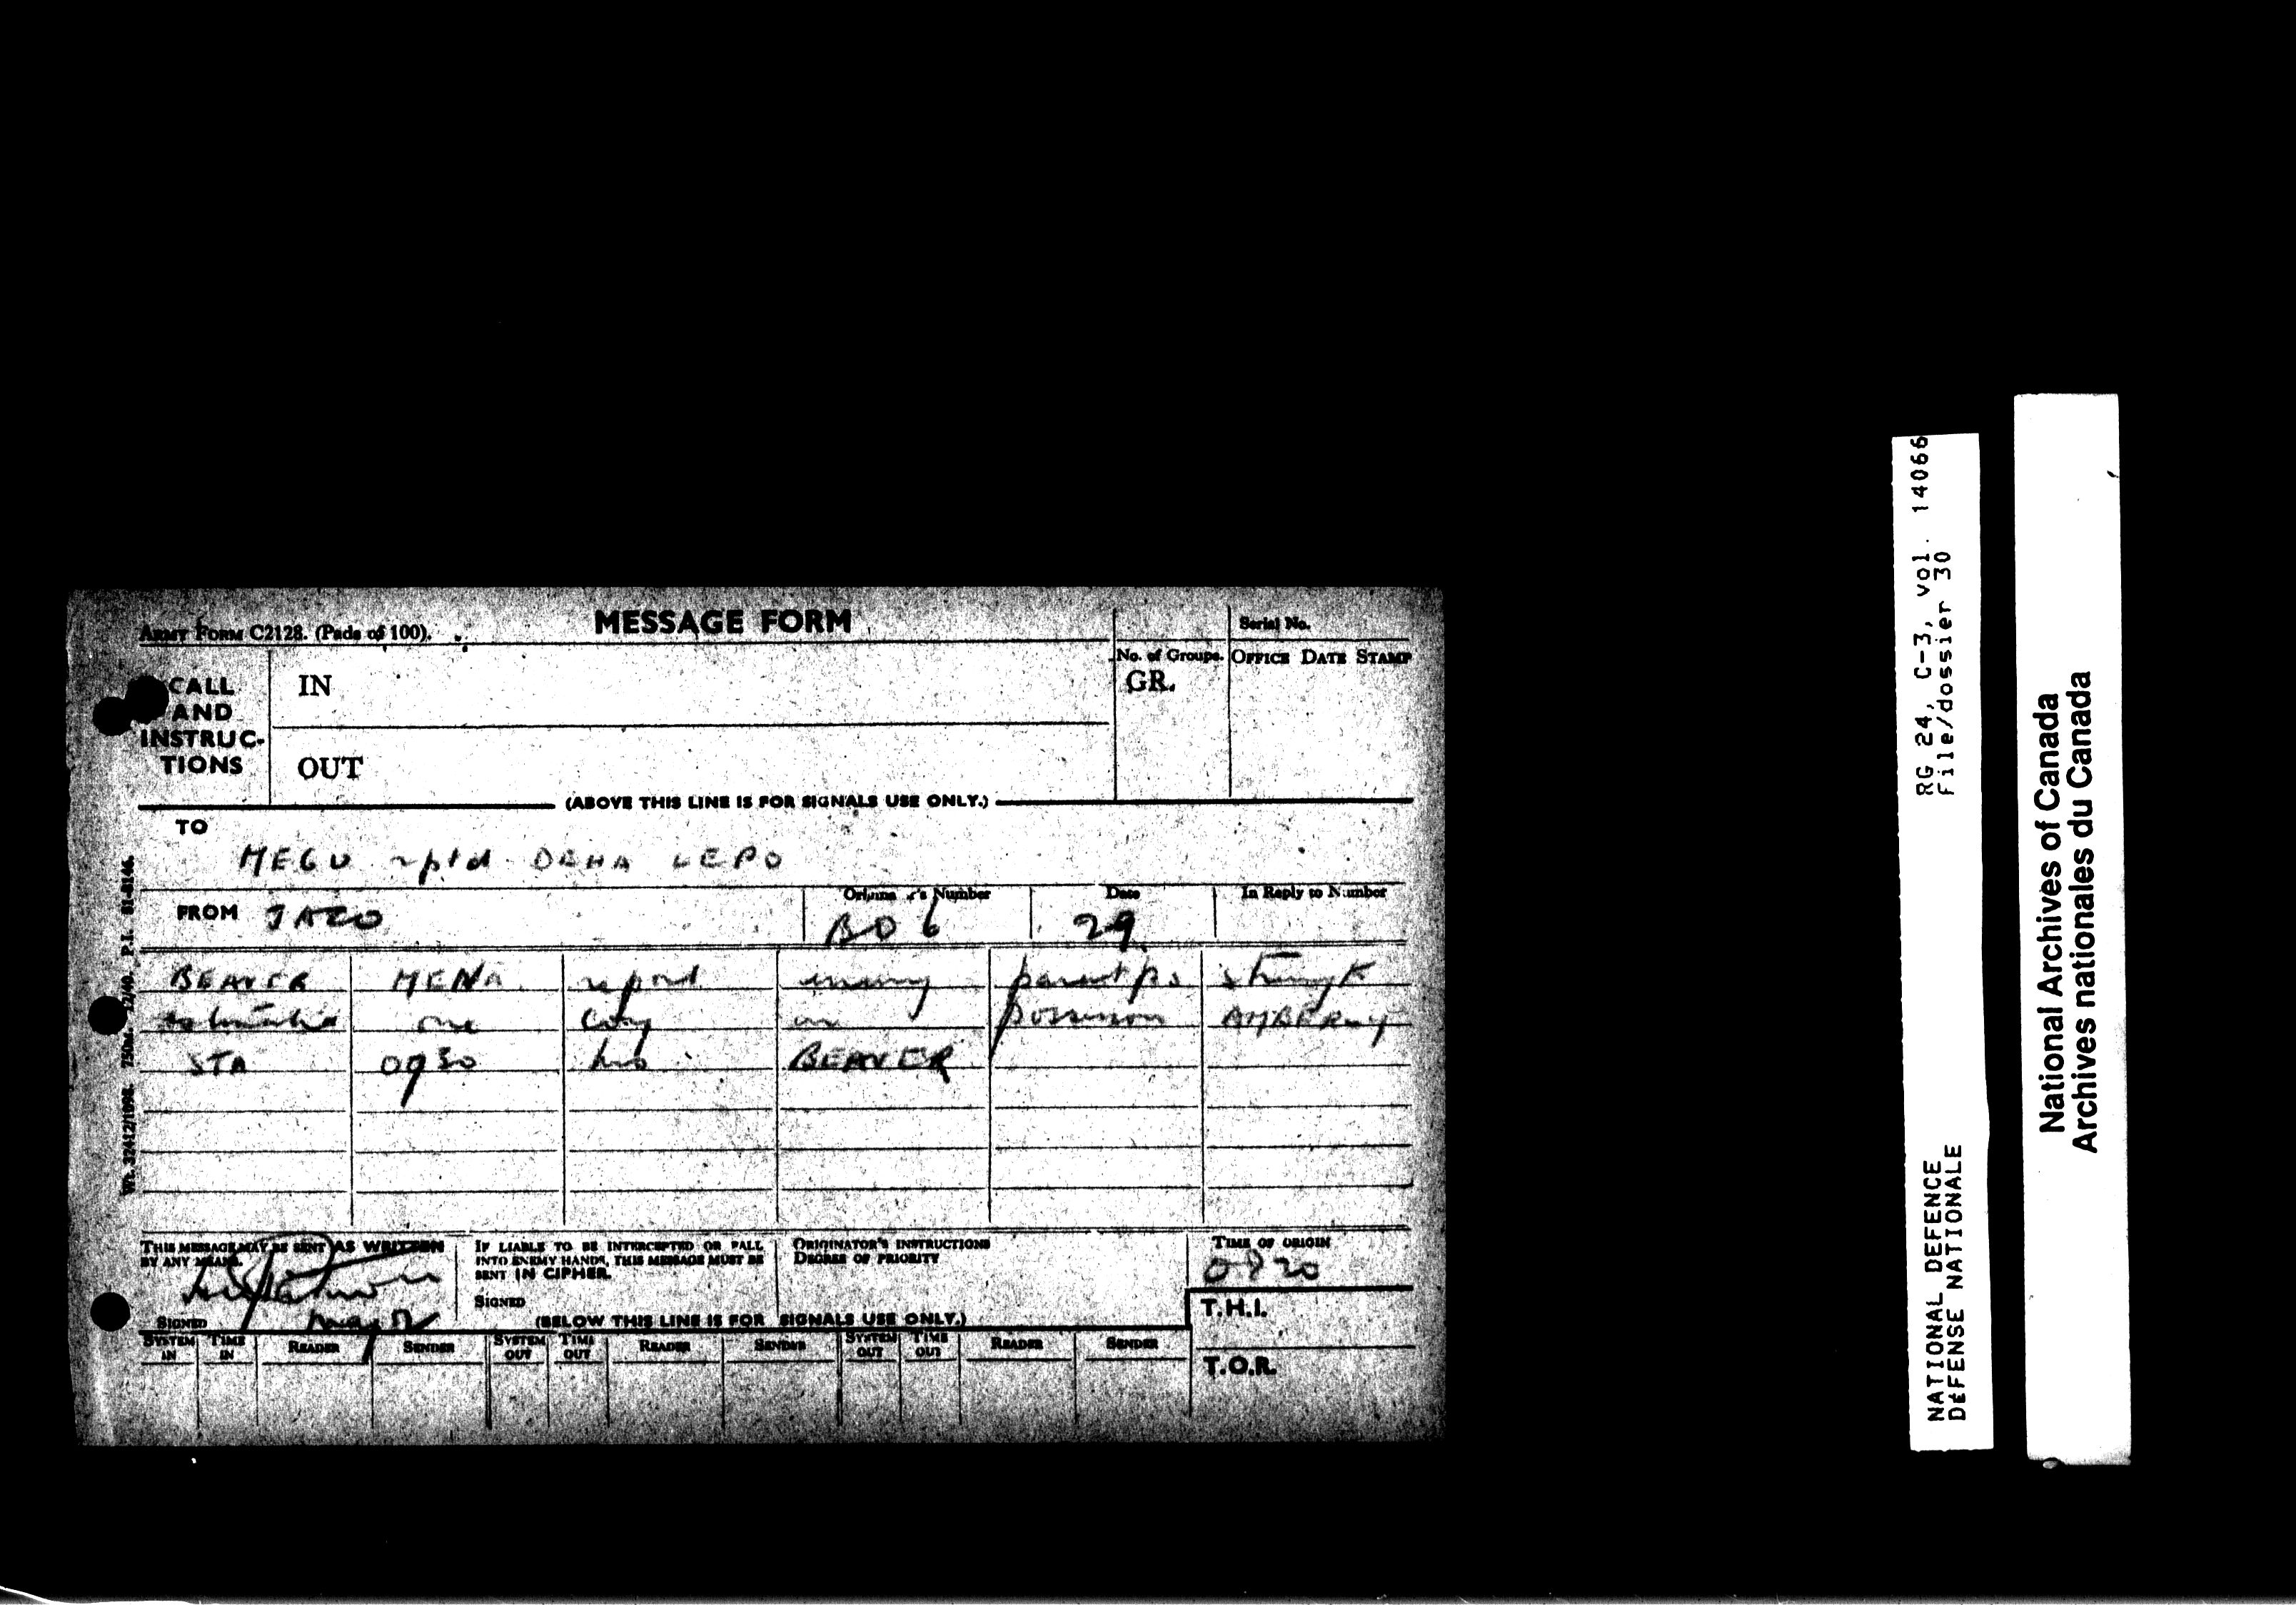 ARMY FORM C2128. (Pads of 100).
MESSAGE FORM
Serial No.
CALL AND INSTRUC-TIONS
IN
OUT
No. of Groups.
GR.
OFFICE DATE STAMP
(ABOVE THIS LINE IS FOR SIGNALS USE ONLY.)
TO
MEGU rptd DEHA LEPO
FROM JAZO
Originator's Number
BO 6
Date
29
In Reply to Number
BEAVER MENA report enemy paratps strength
estimated one coy in possession AMBERLEY
STA 0730 hrs BEAVER
THIS MESSAGE MAY BE SENT AS WRITTEN
BY ANY MEANS.
SIGNED
IF LIABLE TO BE INTERCEPTED OR FALL
INTO ENEMY HANDS, THIS MESSAGE MUST BE
SENT IN CIPHER.
SIGNED
ORIGINATOR'S INSTRUCTIONS
DEGREE OF PRIORITY
TIME OF ORIGIN
0820
(BELOW THIS LINE IS FOR SIGNALS USE ONLY.)
T.H.I.
T.O.R.
SYSTEM IN TIME IN READER SENDER SYSTEM OUT TIME OUT READER SENDER SYSTEM OUT TIME OUT READER SENDER
RG 24, C-3, vol. 14066
File/dossier 30
NATIONAL DEFENCE
DéFENSE NATIONALE
National Archives of Canada
Archives nationales du Canada